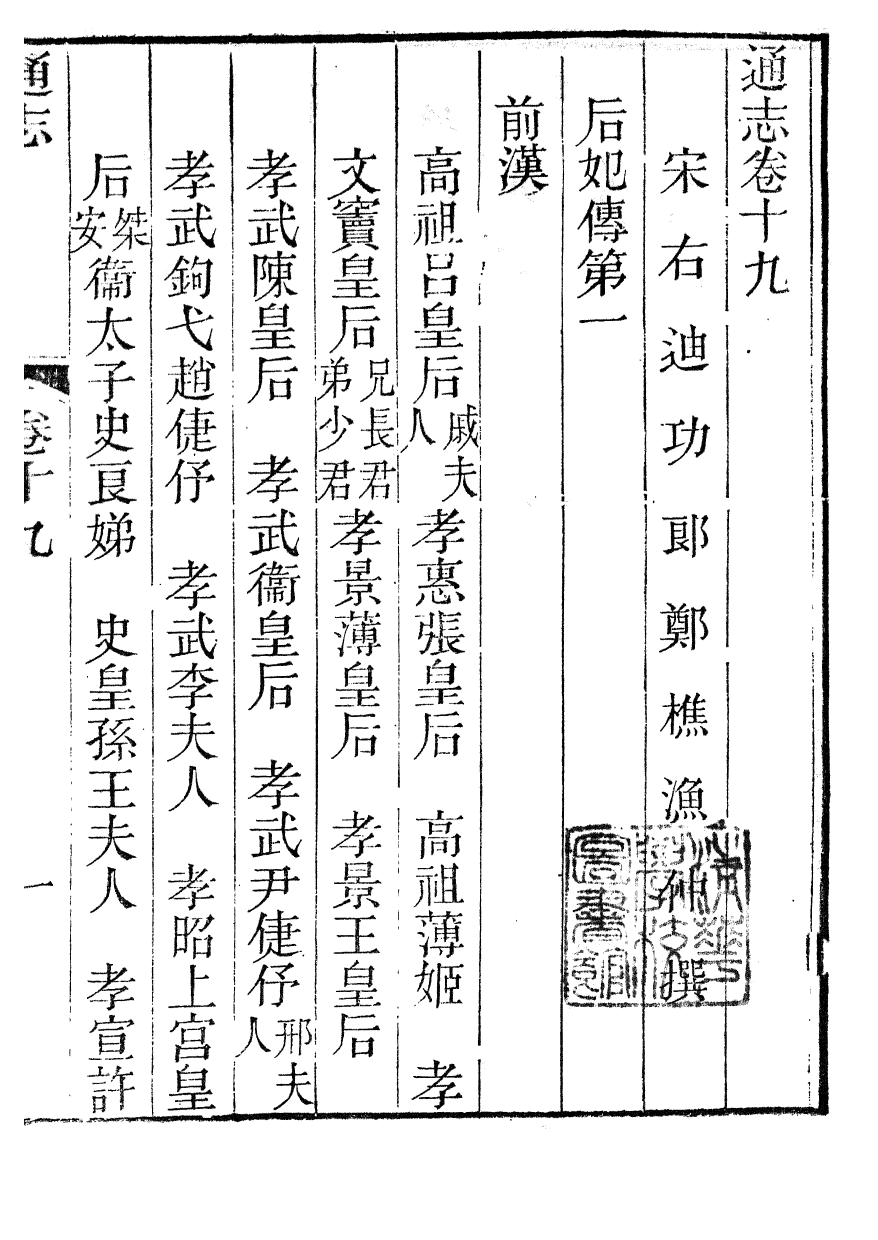 通志卷十九
宋右迪功郎鄭樵漁仲撰
后妃傳第一
前漢
高祖呂皇后戚夫人 孝惠張皇后 高祖薄姬 孝
文竇皇后兄長君弟少君 孝景薄皇后 孝景王皇后
孝武陳皇后 孝武衞皇后 孝武尹倢伃邢夫人
孝武鉤弋趙倢伃 孝武李夫人 孝昭上官皇
后桀安 衞太子史良娣 史皇孫王夫人 孝宣許
通志 卷十九 一
清華學校圖書館